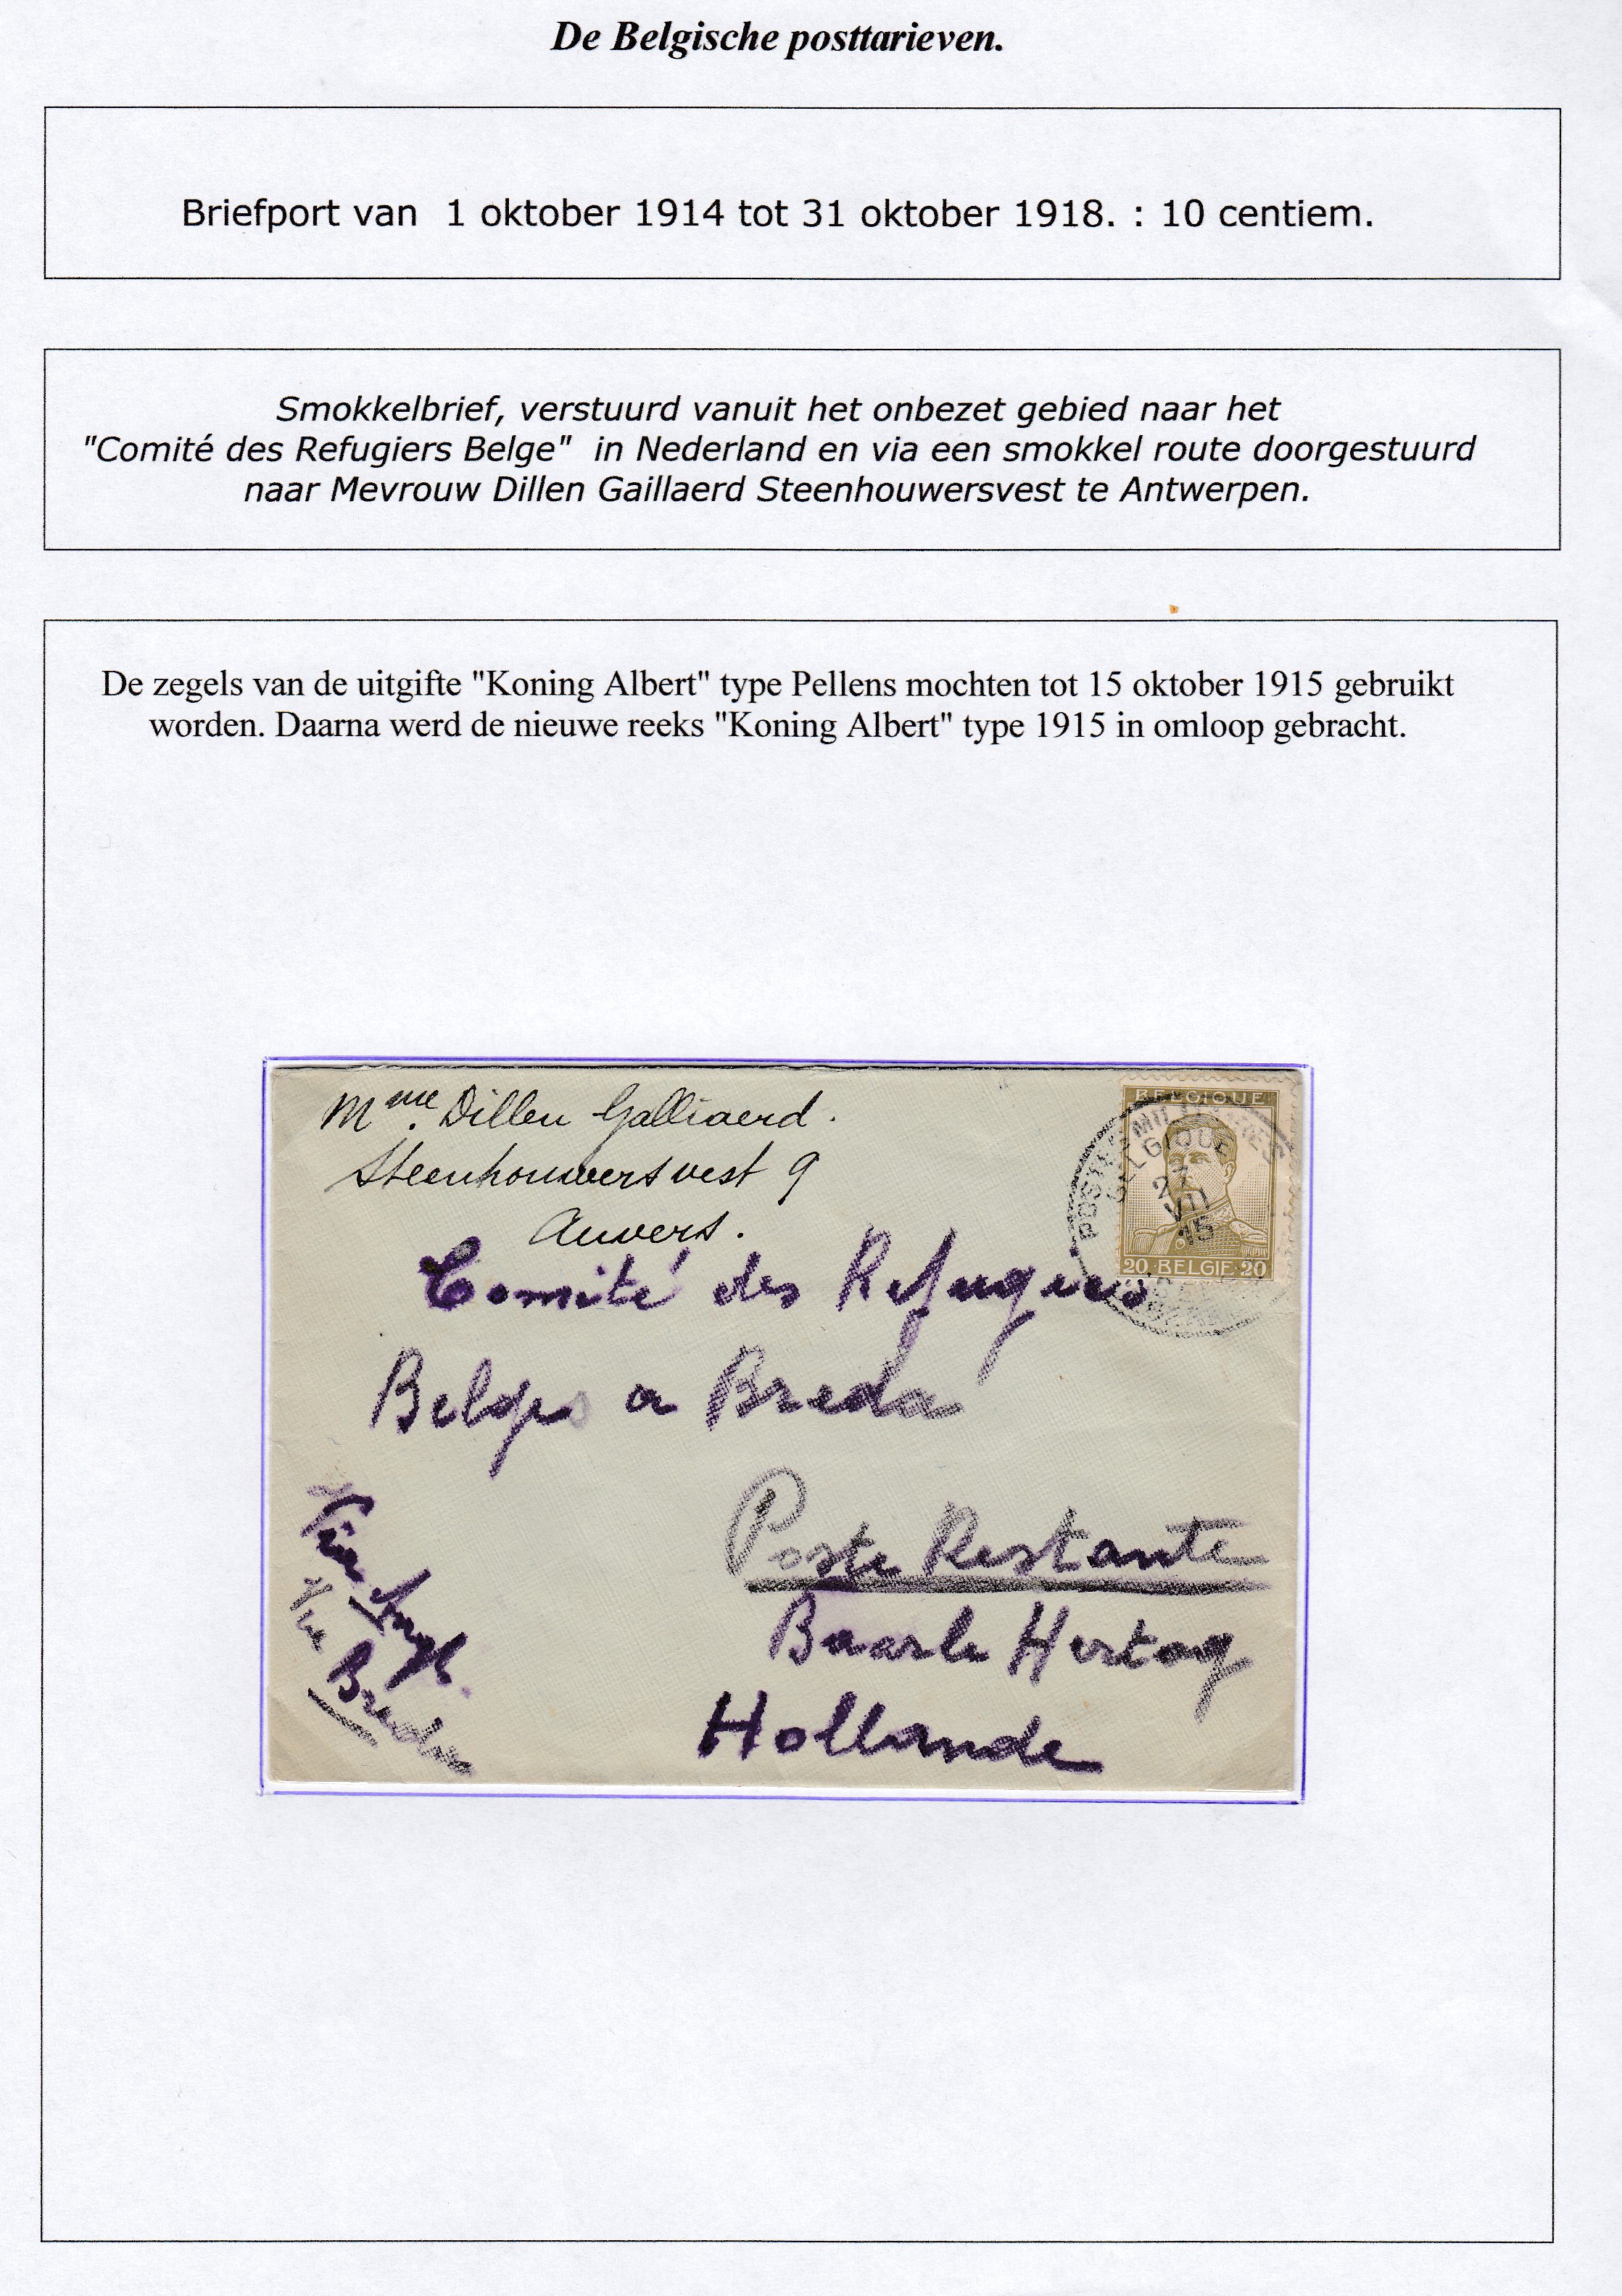 De Belgische posttarieven.
Briefport van 1 oktober 1914 tot 31 oktober 1918. : 10 centiem.
Smokkelbrief, verstuurd vanuit het onbezet gebied naar het
"Comité des Refugiers Belge" in Nederland en via een smokkel route doorgestuurd
naar Mevrouw Dillen Gaillaerd Steenhouwersvest te Antwerpen.
De zegels van de uitgifte "Koning Albert" type Pellens mochten tot 15 oktober 1915 gebruikt
worden. Daarna werd de nieuwe reeks "Koning Albert" type 1915 in omloop gebracht.
Mme. Dillen Galliaerd.
Steenhouwersvest 9
Anvers.
BELGIQUE
BELGIQUE
27
VII
15
20 BELGIE 20
Comité des Refugiers
Belges a Breda
Poste Restante
Baarle Hertog
Hollande
Via Angl.
Via Breda